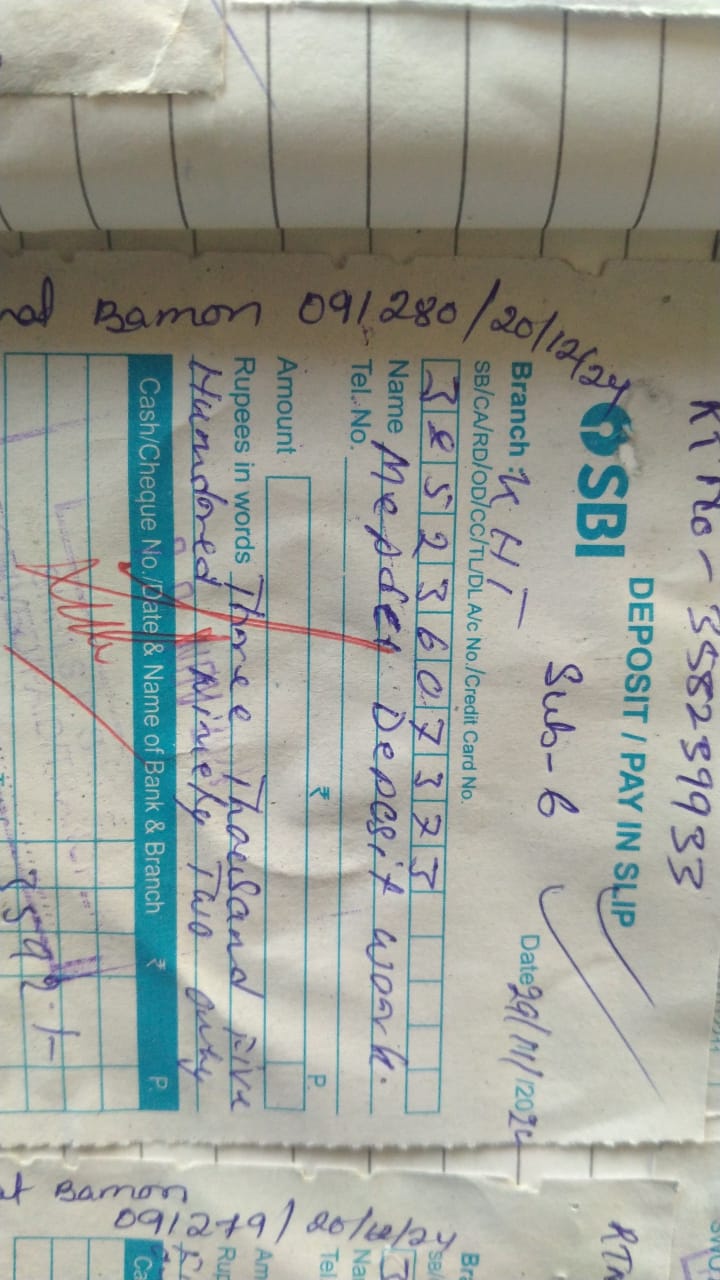 RT No - 358239933
DEPOSIT / PAY IN SLIP
SBI
Sub-6
Branch : KHT
Date 29/11/2024
SB/CA/RD/OD/CC/TL/DL A/c No./Credit Card No.
38523607373
Name Mepder Deposit work.
Tel. No.
Amount ₹ P.
Rupees in words Three Thousand Five
Hunndred Ninety Two only
Cash/Cheque No./Date & Name of Bank & Branch ₹ P.
3592./-
Bamon 091280/20/12/24
Bamon
091279/20/12/24